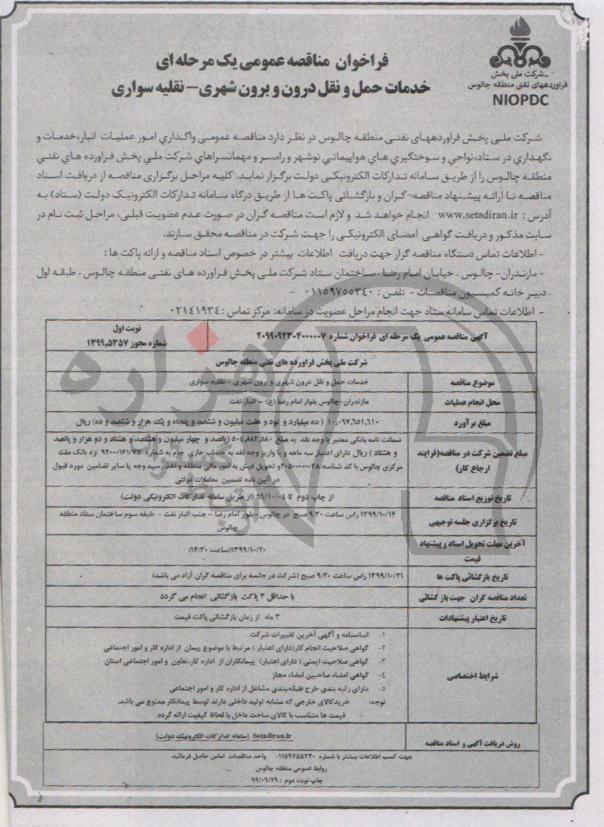 فراخوان مناقصه عمومی یک مرحله ای
خدمات حمل و نقل درون و برون شهری – نقلیه سواری
شرکت ملی پخش
فرآوردههای نفتی منطقه چالوس
NIOPDC
شرکت ملی پخش فراوردههای نفتی منطقه چالوس در نظر دارد مناقصه عمومی واگذاری امور عملیات انبار،خدمات و
نگهداری در ستاد،نواحی و سوختگیری های هواپیمائی نوشهر و رامسر و مهمانسراهای شرکت ملی پخش فراورده های نفتی
منطقه چالوس را از طریق سامانه تدارکات الکترونیکی دولت برگزار نماید. کلیه مراحل برگزاری مناقصه از دریافت اسناد
مناقصه تا ارائه پیشنهاد مناقصه-گران و بازگشائی پاکت ها از طریق درگاه سامانه تدارکات الکترونیک دولت (ستاد) به
آدرس : www.setadiran.ir انجام خواهد شد و لازم است مناقصه گران در صورت عدم عضویت قبلی، مراحل ثبت نام در
سایت مذکور و دریافت گواهی امضای الکترونیکی را جهت شرکت در مناقصه محقق سازند.
- اطلاعات تماس دستگاه مناقصه گزار جهت دریافت اطلاعات بیشتر در خصوص اسناد مناقصه و ارائه پاکت ها :
- مازندران- چالوس - خیابان امام رضا - ساختمان ستاد شرکت ملی پخش فراورده های نفتی منطقه چالوس - طبقه اول
- دبیر خانه کمیسیون مناقصات - تلفن : ۰۱۱۵۹۷۵۵۳۴۰
- اطلاعات تماس سامانه ستاد جهت انجام مراحل عضویت در سامانه: مرکز تماس : ۰۲۱۴۱۹۳۴
آگهی مناقصه عمومی یک مرحله ای فراخوان شماره ۲۰۹۹۰۹۲۳۰۴۰۰۰۰۰۷
نوبت اول
شماره مجوز ۱۳۹۹.۵۳۵۷
شرکت ملی پخش فراورده های نفتی منطقه چالوس
موضوع مناقصه
خدمات حمل و نقل درون شهری و برون شهری – نقلیه سواری
محل انجام عملیات
مازندران -چالوس بلوار امام رضا (ع) – انبار نفت
مبلغ برآورد
۱۰,۰۹۷,۶۵۱,۶۱۰ ( ده میلیارد و نود و هفت میلیون و ششصد و پنجاه و یک هزار و ششصد و ده) ریال
مبلغ تضمین شرکت در مناقصه(فرایند ارجاع کار)
ضمانت نامه بانکی معتبر یا وجه نقد به مبلغ ۵۰۴,۸۸۲,۵۸۰ (پانصد و چهار میلیون و هشتصد و هشتاد و دو هزار و پانصد
و هشتاد ) ریال دارای اعتبار سه ماهه و یا واریز وجه نقد به حساب جاری جام به شماره نزد بانک ملت
مرکزی چالوس با کد شناسه و تحویل فیش به امور مالی منطقه و اخذ رسید وجه یا سایر تضامین مورد قبول
در آئین نامه تضمین معاملات دولتی
تاریخ توزیع اسناد مناقصه
از چاپ دوم تا ۹۹/۱۰/۰۴ (از طریق سامانه تدارکات الکترونیکی دولت)
تاریخ برگزاری جلسه توجیهی
۱۳۹۹/۱۰/۱۴ راس ساعت ۹:۳۰ صبح در چالوس –بلوار امام رضا – جنب انبار نفت – طبقه سوم ساختمان ستاد منطقه
چالوس
آخرین مهلت تحویل اسناد و پیشنهاد قیمت
۱۳۹۹/۱۰/۳۰(ساعت ۱۴:۳۰)
تاریخ بازگشائی پاکت ها
۱۳۹۹/۱۰/۳۱ راس ساعت ۹:۳۰ صبح (شرکت در جلسه برای مناقصه گران آزاد می باشد)
تعداد مناقصه گران جهت بازگشائی
با حداقل ۳ پاکت بازگشائی انجام می گردد
تاریخ اعتبار پیشنهادات
۳ ماه از زمان بازگشائی پاکت قیمت
شرایط اختصاصی
۱- اساسنامه و آگهی آخرین تغییرات شرکت
۲- گواهی صلاحیت انجام کار(دارای اعتبار ) مرتبط با موضوع پیمان از اداره کار و امور اجتماعی
۳- گواهی صلاحیت ایمنی ( دارای اعتبار) پیمانکاران از اداره کار،تعاون و امور اجتماعی استان
۴- گواهی امضاء صاحبین امضاء مجاز
۵- دارای رتبه بندی طرح طبقه بندی مشاغل از اداره کار و امور اجتماعی
توجه: خریدکالای خارجی که مشابه تولید داخلی دارند توسط پیمانکار ممنوع می باشد.
قیمت ها متناسب با کالای ساخت داخل با لحاظ کیفیت ارائه گردد
روش دریافت آگهی و اسناد مناقصه
Setadiran.ir (سامانه تدارکات الکترونیک دولت)
جهت کسب اطلاعات بیشتر با شماره ۰۱۱۵۹۷۵۵۳۴۰ واحد مناقصات تماس حاصل فرمائید.
روابط عمومی منطقه چالوس
چاپ نوبت دوم : ۹۹/۰۹/۲۹